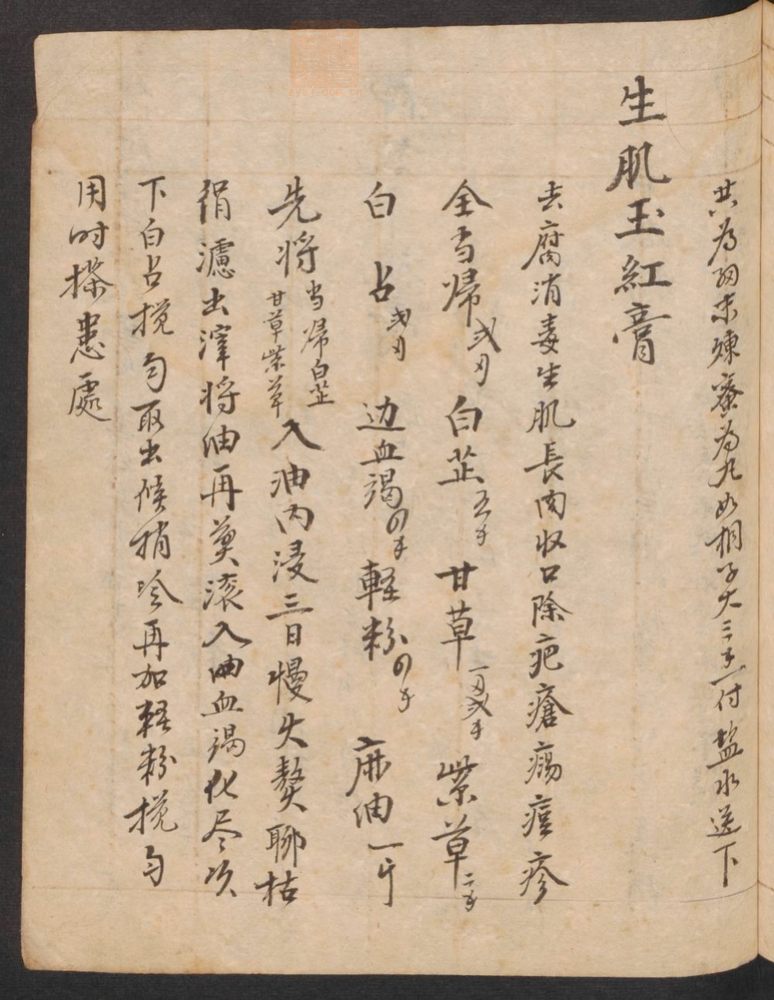 共為细末煉蜜為丸如桐子大三手一付盐水送下
生肌玉紅膏
去腐消毒生肌長肉收口除疤瘡瘍疸疹
全当帰弍刃 白芷五手 甘草一刃弍手 紫草二手
白占弍刃 边血竭四手 軽粉四手 麻油一斤
先将当帰白芷甘草紫草入油内浸三日慢火熬聊枯
绢濾出滓将油再煎滚入血竭化尽次
下白占搅匀取出候稍冷再加軽粉搅匀
用时搽患處